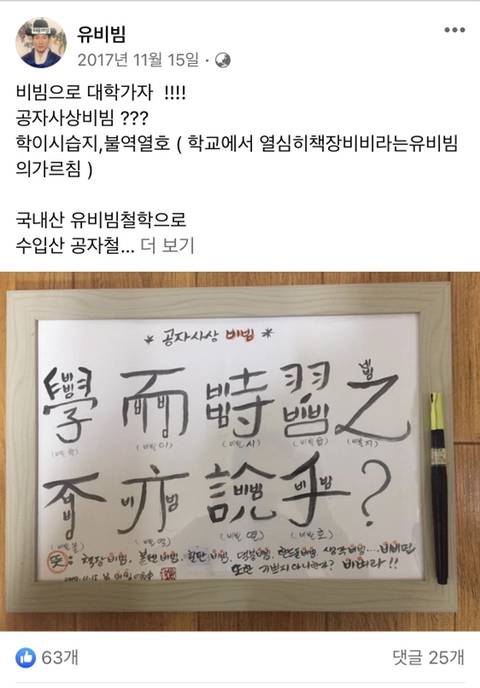 유비빔
2017년 11월 15일
비빔으로 대학가자 !!!!
공자사상비빔 ???
학이시습지,불역열호 ( 학교에서 열심히책장비비라는유비빔
의가르침 )
국내산 유비빔철학으로
수입산 공자철... 더 보기
* 공자사상 비빔 *
學而時習之
(비빔 학) (비빔 이) (비빔 시) (비빔 습) (비빔 지)
不亦說乎?
(비빔 불) (비빔 역) (비빔 열) (비빔 호)
책장비빔, 볼펜비빔, 칠판비빔, 생각비빔... 비비면
또한 기쁘지아니한가? 비비라!!
2017.11.15
63개
댓글 25개